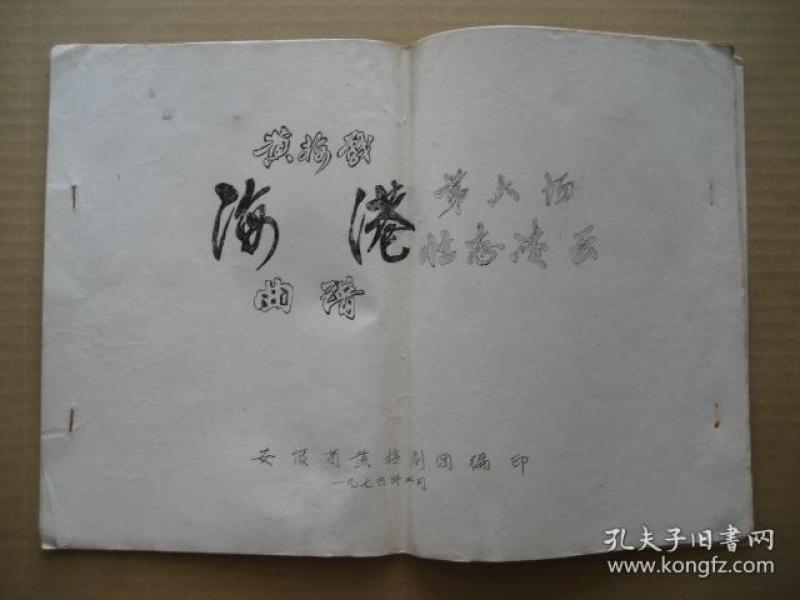 黄梅戏
海港
曲谱
第六场
壮志凌云
安徽省黄梅剧团编印
一九七 年 月
孔夫子旧书网
www.kongfz.com